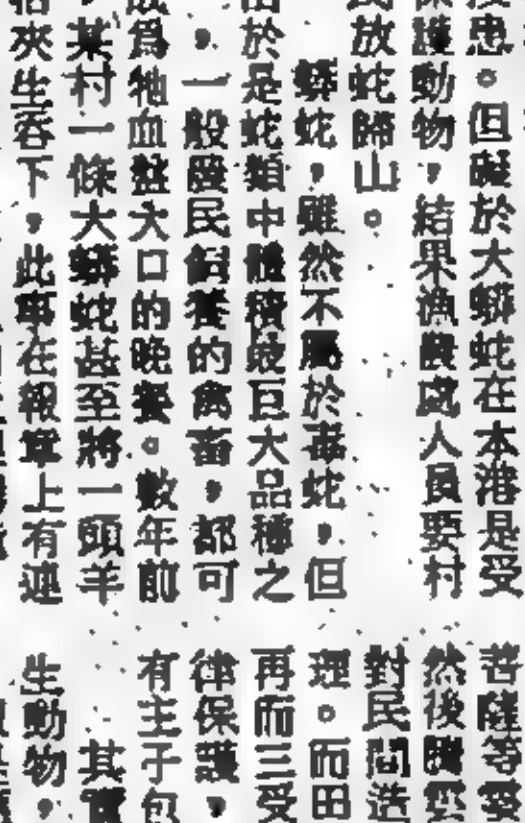 患。但礙於大蟒蛇在本港是受
保護動物，結果漁農處人員要村
民放蛇歸山。
蟒蛇，雖然不屬於毒蛇，但
由於是蛇類中體積最巨大品種之
，一般農民飼養的禽畜，都可
成爲牠血盤大口的晚餐。數年前
，某村一條大蟒蛇甚至將一頭羊
夾生吞下，此事在報章上有連
菩薩等
然後騰雲
對民間造
理。而田
再而三受
律保護，
有主于包
其實
生動物，